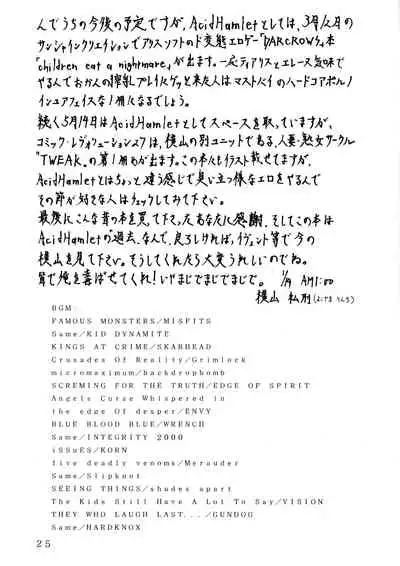 んでうちの今後の予定ですが、AcidHamletとしては、3月12日の
サンシャインクリエイションでアリスソフトのド変態エロゲー「DARCROWS」本
『children eat a nightmare』が出ます。一応ティアリスとエレーヌ気味で
やるんでおかんの搾乳プレイにゲッと来た人はマストバイのハードコアポルノ
インユアフェイスな1冊になるでしょう。
続く5月14日はAcidHamletとしてスペースを取っていますが、
コミックレヴォリューション27は、横山の別ユニットである、人妻・熟女サークル
「TWEAK」の第1冊もが出ます。この本にもイラスト載せてますが、
AcidHamletとはちょっと違う感じで臭い立つ様なエロをやるんで
その節が好きな人はチェックしておいて下さい。
最後にこんな昔の本を買って下さったあなたに感謝、そしてこの本は
AcidHamletの"過去"なんで、良ろしければ、イヴェント等で今の
横山を見て下さい。そうしてくれたら大変うれしいのでね。
耳で俺を喜ばせてくれ!いやまじでまじでまじで。 1/19 AM1:00
横山私刑(よこやまりんち)
BGM:
FAMOUS MONSTERS/MISFITS
Same/KID DYNAMITE
KINGS AT CRIME/SKARHEAD
Crusades Of Reality/Grimlock
micromaximum/backdropbomb
SCREMING FOR THE TRUTH/EDGE OF SPIRIT
Angels Curse Whispered in
the edge Of desper/ENVY
BLUE BLOOD BLUE/WRENCH
Same/INTEGRITY 2000
iSSuES/KORN
five deadly venoms/Merauder
Same/Slipknot
SEEING THINGS/shades apart
The Kids Still Have A Lot To Say/VISION
THEY WHO LAUGH LAST.../GUNDOG
Same/HARDKNOX
25